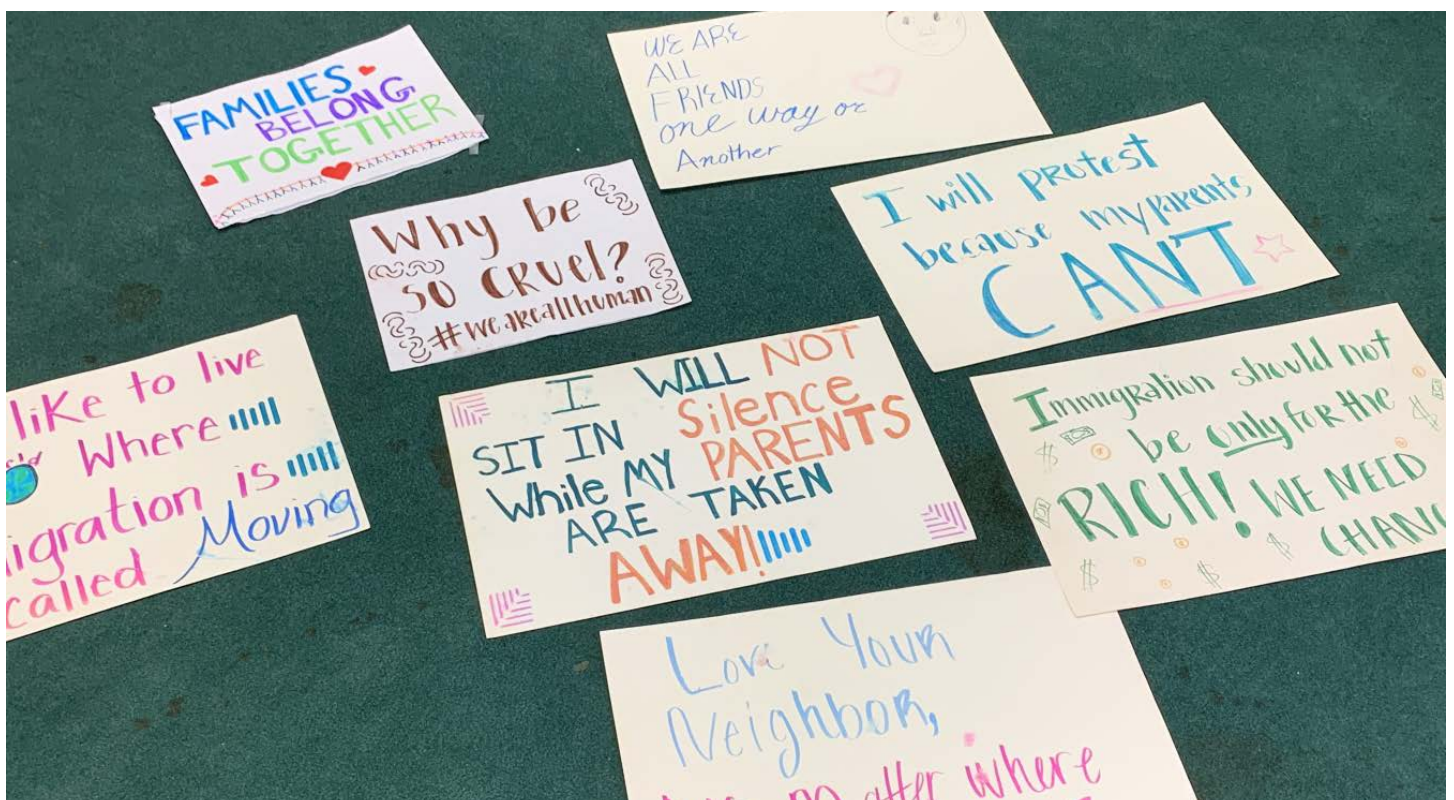 FAMILIES
BELONG
TOGETHER
WE ARE
ALL
FRIENDS
one way or
Another
Why be
SO CRUEL?
#weareallhuman
I will protest
because my parents
CAN'T
like to live
Where
igration is
called Moving
I WILL NOT
SIT IN Silence
While MY PARENTS
ARE TAKEN
AWAY!
Immigration should not
be only for the
RICH! WE NEED
CHANG
Love Your
Neighbor,
matter where